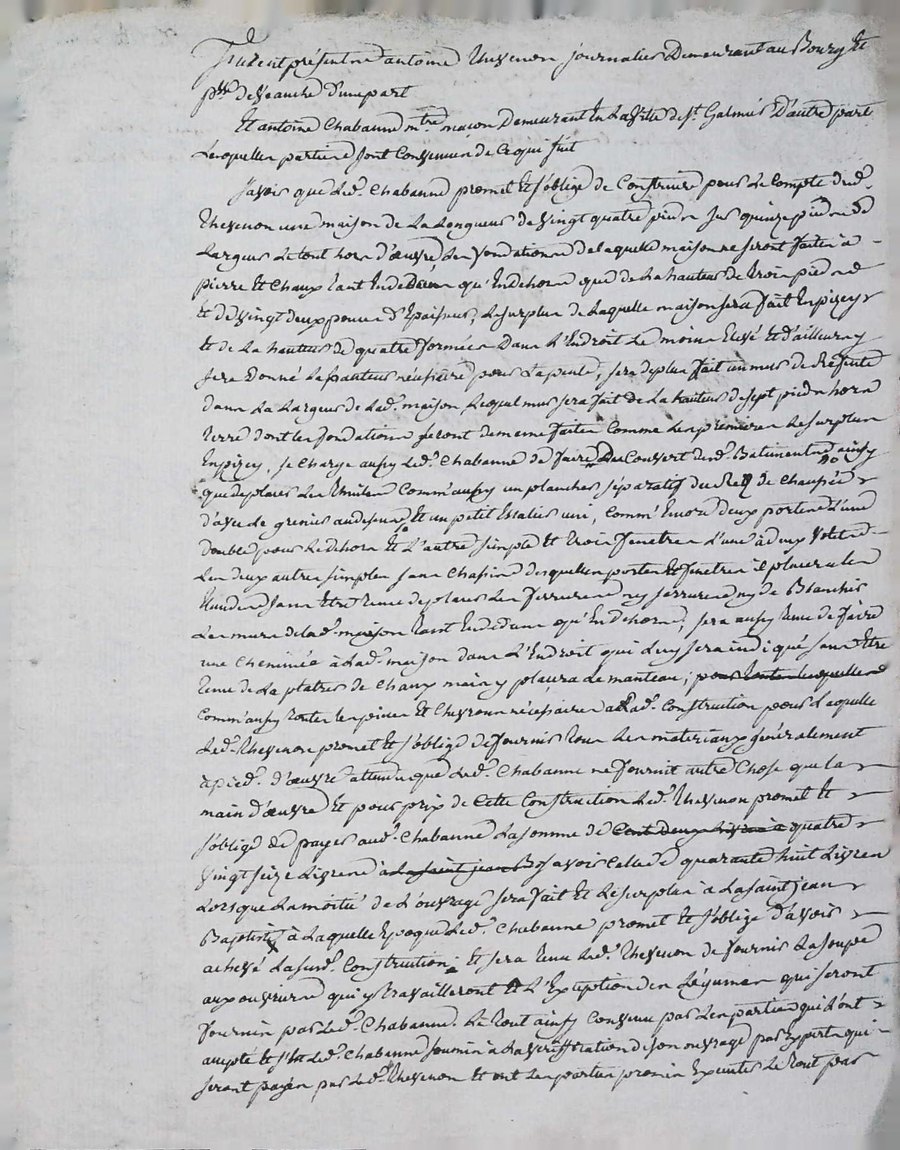 Furent présents antoine Thevenon journalier Demeurant au Bourg Et
psse de Veauche d'une part
Et antoine Chabanne mtre macon Demeurant En La Ville de St. Galmier D'autre part
Lesquelles parties sont Convenues de Ce qui suit
Savoir que Led. Chabanne promet Et s'oblige de Construire pour Le Compte dud.
Thevenon une maison de La Longueur de Vingt quatre pieds sur quinze pieds de
Largeur Le tout hors d'œuvre, Les fondations de laquelle maison seront faites à
pierre Et Chaux tant En dedans qu'En dehors que de La hauteur de trois pieds
Et de Vingt deux pouces d'Epaisseur, Le surplus de Laquelle maison sera fait En pizey
Et de La hauteur de quatre formées Dans L'Endroit Le moins Elevé Et d'ailleurs
sera Donné La hauteur nécessaire pour La pente, sera de plus fait un mur de Refente
dans La Largeur de Lad. maison Lequel mur sera fait de La hauteur de sept pieds hors
terre dont Les fondations seront de meme faites Comme Les premieres Le surplus
En pizey, se Charge aussy Led. Chabanne de faire Le Couvert dud. Batiment ainsy
que de placer Les Thuiles Comm'aussy un plancher séparatif du Rez de Chaussée
d'avec Le grenier au dessus, Et un petit Escalier uni, Comm'Encore deux portes L'une
double pour Le dehors Et L'autre simple Et trois fenetres L'une à deux Volets
Les deux autres simples sans Chassis desquelles portes Et fenetres il placera les
sans Etre Tenu de placer Les ferrures ny serrures ny de Blanchir
Les murs de lad. maison tant En dedans qu'En dehors, sera aussy Tenu de faire
une Cheminée à Lad. maison dans L'Endroit qui Luy sera indiqué sans Etre
Tenu de La platrer de Chaux mais y placera Le manteau; pour toutes lesquelles
Comm'aussy toutes les pieces Et Chevrons nécessaires à Lad. Construction pour Laquelle
Led. Thevenon promet Et s'oblige de fournir tous Les materiaux généralement
à pied d'œuvre attendu que Led. Chabanne ne fournit autre Chose que la
main d'œuvre Et pour prix de Cette Construction Led. Thevenon promet Et
s'oblige de payer aud. Chabanne La somme de Cent Deux Livres à quatre
Vingt seize Livres à La saint jean B. savoir Celle de quarante huit Livres
Lorsque La moitié de L'ouvrage sera fait Et Le surplus à La saint jean
Baptiste à Laquelle Epoque Led. Chabanne promet Et s'oblige d'avoir
achevé La susd. Construction; Et sera Tenu Led. Thevenon de fournir La soupe
aux ouvriers qui y travailleront à L'Exception des Légumes qui seront
fournis par Led. Chabanne. Le tout ainsy Convenu par Les parties qui L'ont
accepté Et s'est Led. Chabanne soumis à La Verification de son ouvrage par Experts qui
seront payés par Led. Thevenon Et ont Les parties promis Executer Le tout par